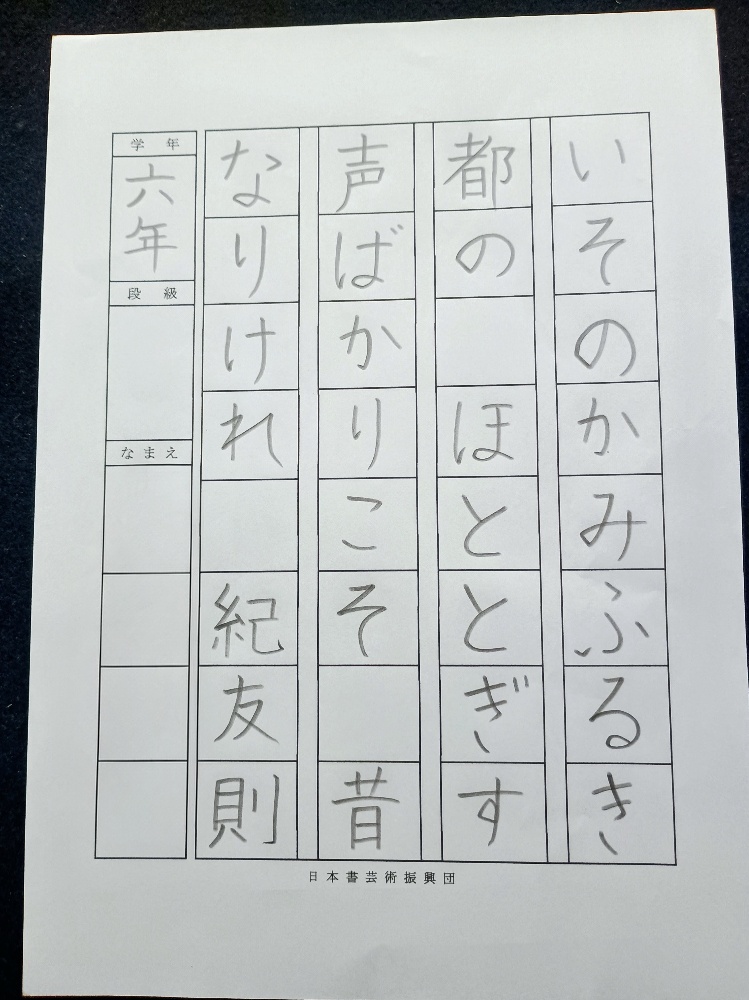 いそのかみふるき
都の　ほととぎす
声ばかりこそ　昔
なりけれ　紀友則
学年
六年
段級
なまえ
日本書芸術振興団